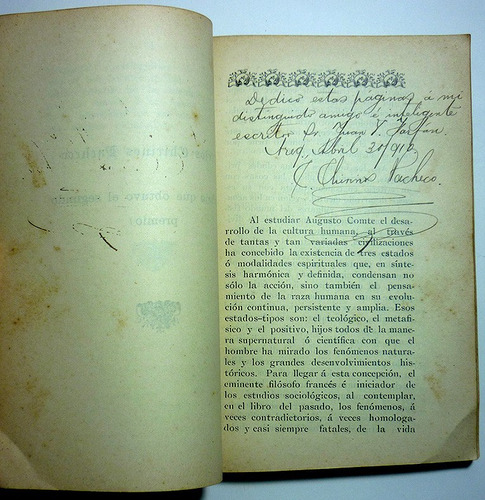 Dedico estas páginas á mi
distinguido amigo é inteligente
escritor Sr. Juan
Areq. Abril 20/910
Pacheco.
Al estudiar Augusto Comte el desa-
rrollo de la cultura humana, al través
de tantas y tan variadas civilizaciones
ha concebido la existencia de tres estados
ó modalidades espirituales que, en sínte-
sis harmónica y definida, condensan no
sólo la acción, sino también el pensa-
miento de la raza humana en su evolu-
ción continua, persistente y amplia. Esos
estados-tipos son: el teológico, el metafi-
sico y el positivo, hijos todos de la mane-
ra supernatural ó científica con que el
hombre ha mirado los fenómenos natura-
les y los grandes desenvolvimientos his-
tóricos. Para llegar á esta concepción, el
eminente filósofo francés é iniciador de
los estudios sociológicos, al contemplar,
en el libro del pasado, los fenómenos, á
veces contradictorios, á veces homologa-
dos y casi siempre fatales, de la vida